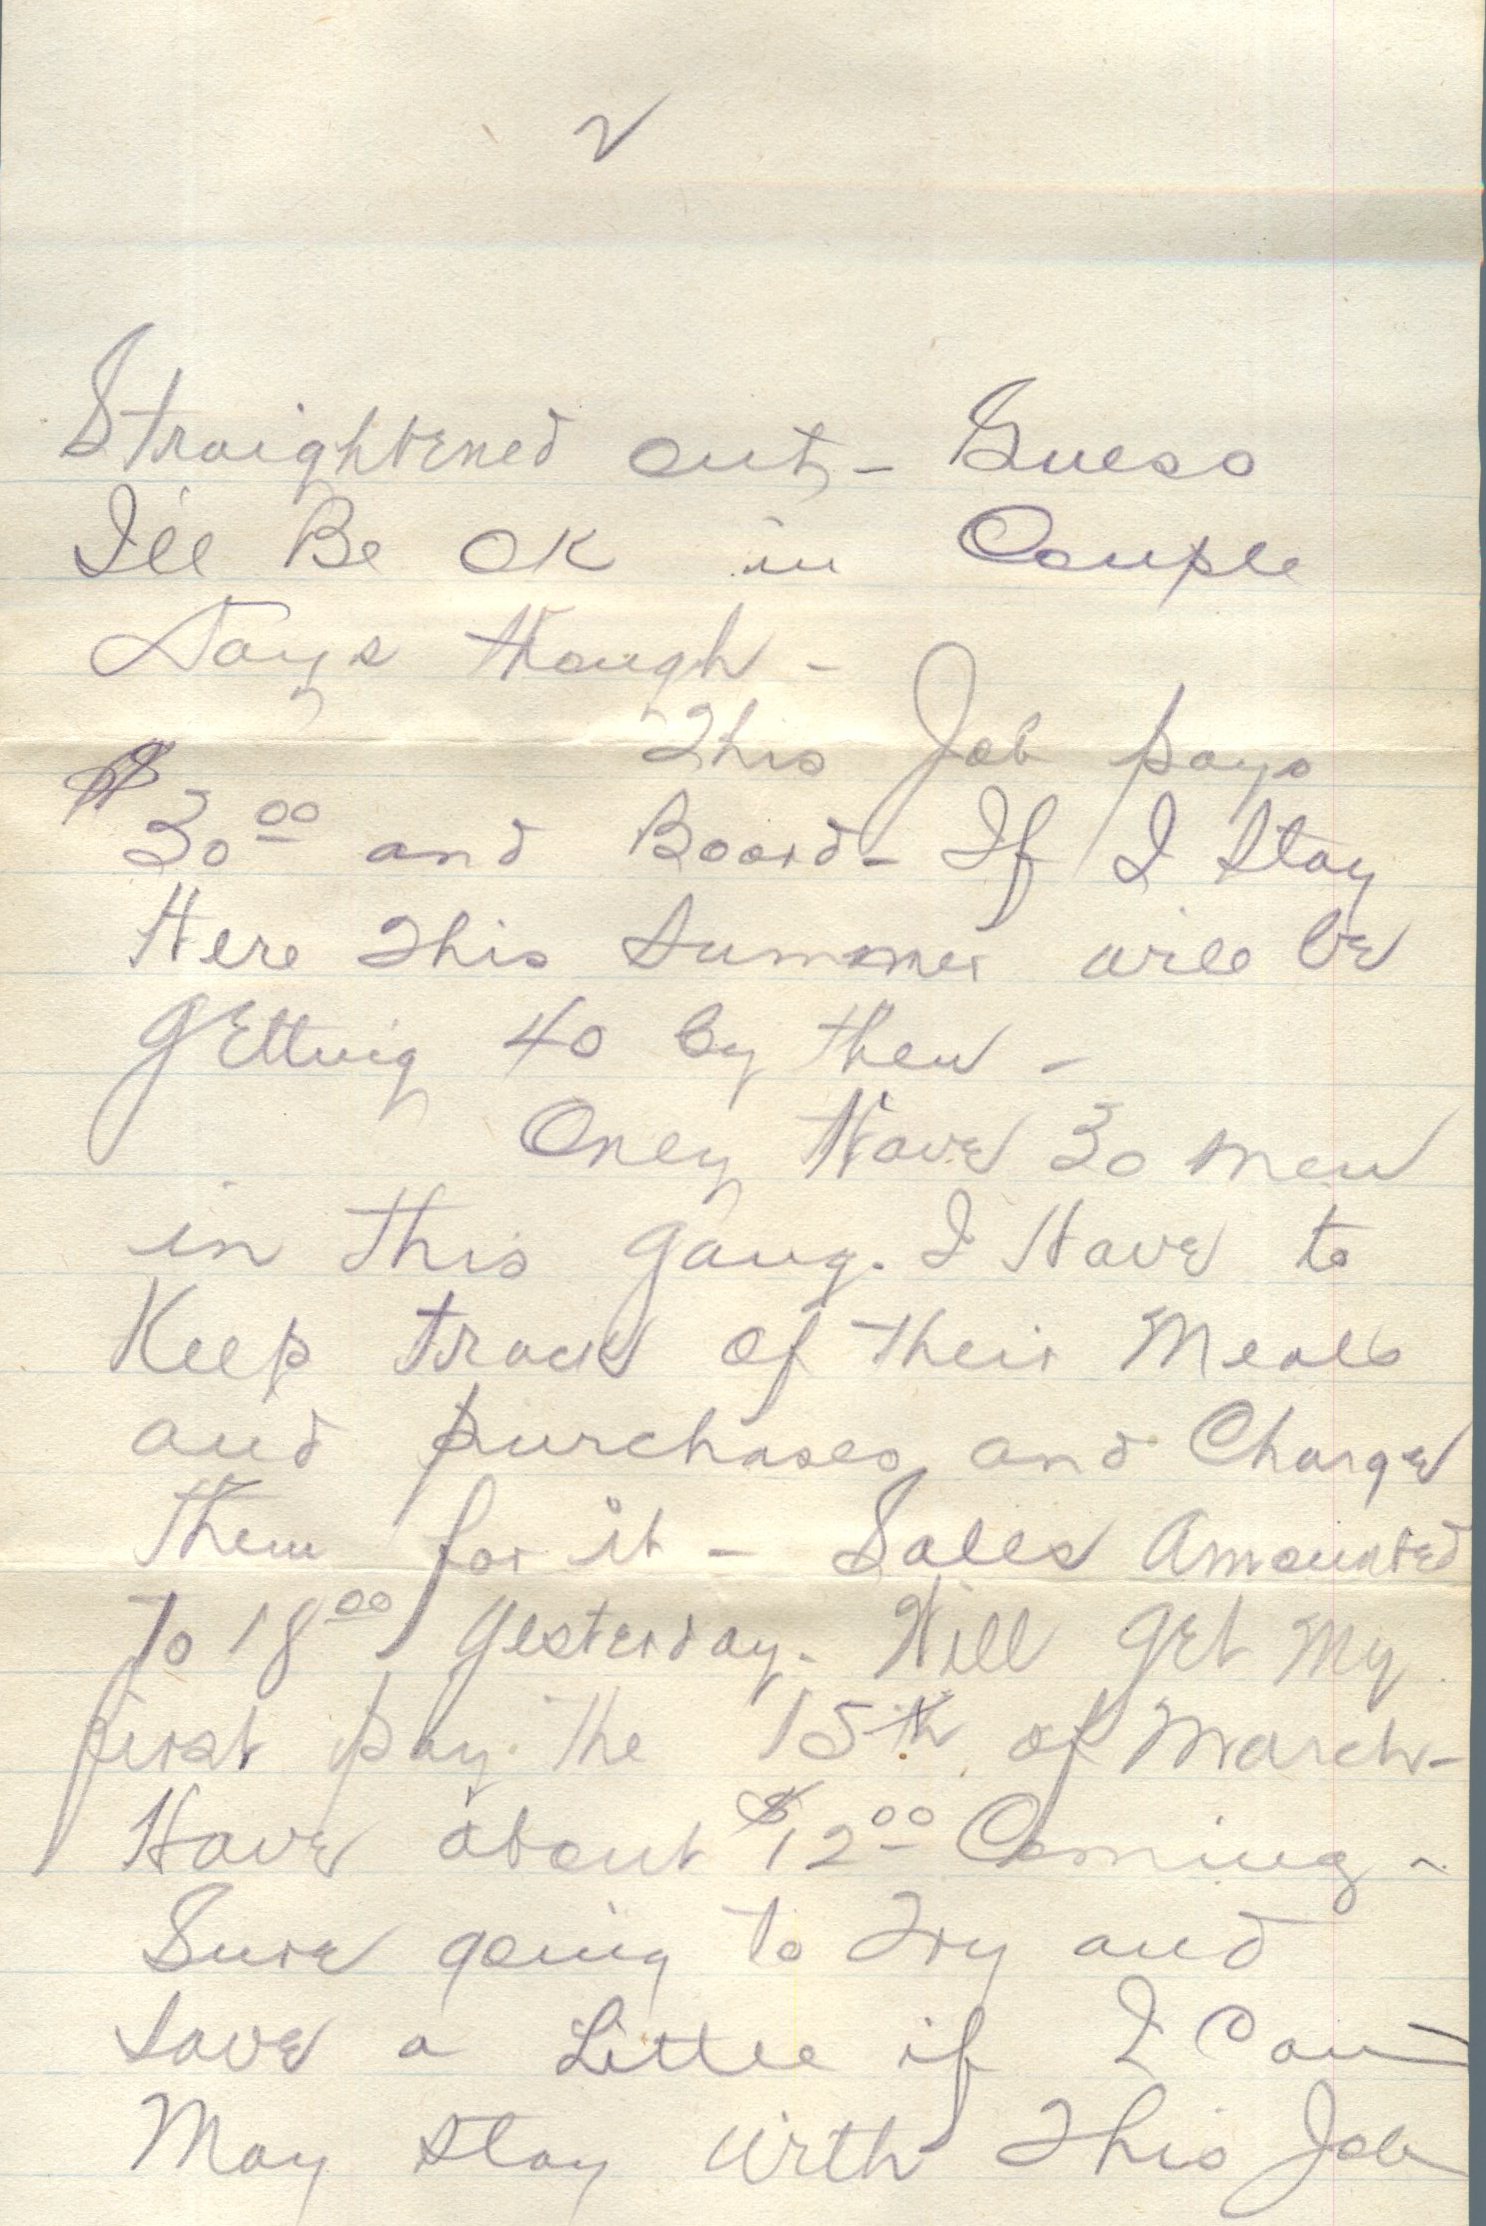 2
Straightened out - Guess
I'll Be OK in Couple
Days though -
This Job pays
$30.00 and Board - If I Stay
Here This Summer will be
getting 40 by then -
Only Have 30 men
in this gang. I Have to
Keep track of their Meals
and purchases and Charge
them for it - Sales Amounted
To 18.00 yesterday. Will get My
first pay the 15th of March -
Have about $12.00 Coming -
Sure going to Try and
save a Little if I Can
May stay with This Job